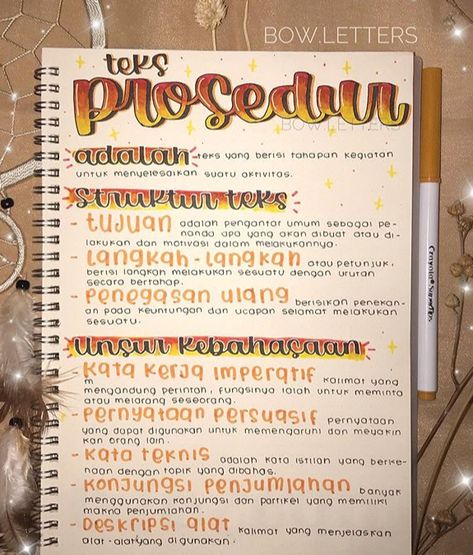 BOW.LETTERS
teks
prosedur
BOW.LETTERS
adalah teks yang berisi tahapan kegiatan
untuk menyelesaikan suatu aktivitas.
struktur teks
- tujuan adalah pengantar umum sebagai pe-
nanda apa yang akan dibuat atau di-
lakukan dan motivasi dalam melakukannya.
- langkah-langkah atau petunjuk,
berisi langkah melakukan sesuatu dengan urutan
secara bertahap.
- penegasan ulang berisikan penekan-
an pada keuntungan dan ucapan selamat melakukan
sesuatu.
unsur kebahasaan
- kata kerja imperatif kalimat yang
m
mengandung perintah, fungsinya ialah untuk meminta
atau melarang seseorang.
- pernyataan persuasif pernyataan
yang dapat digunakan untuk memengaruhi dan meyakin
kan orang lain.
- kata teknis adalah kata istilah yang berke-
naan dengan topik yang dibahas.
- konjungsi penjumlahan banyak
menggunakan konjungsi dan partikel yang memiliki
makna penjumlahan.
- deskripsi alat kalimat yang menjelaskan
alat-alat yang digunakan.